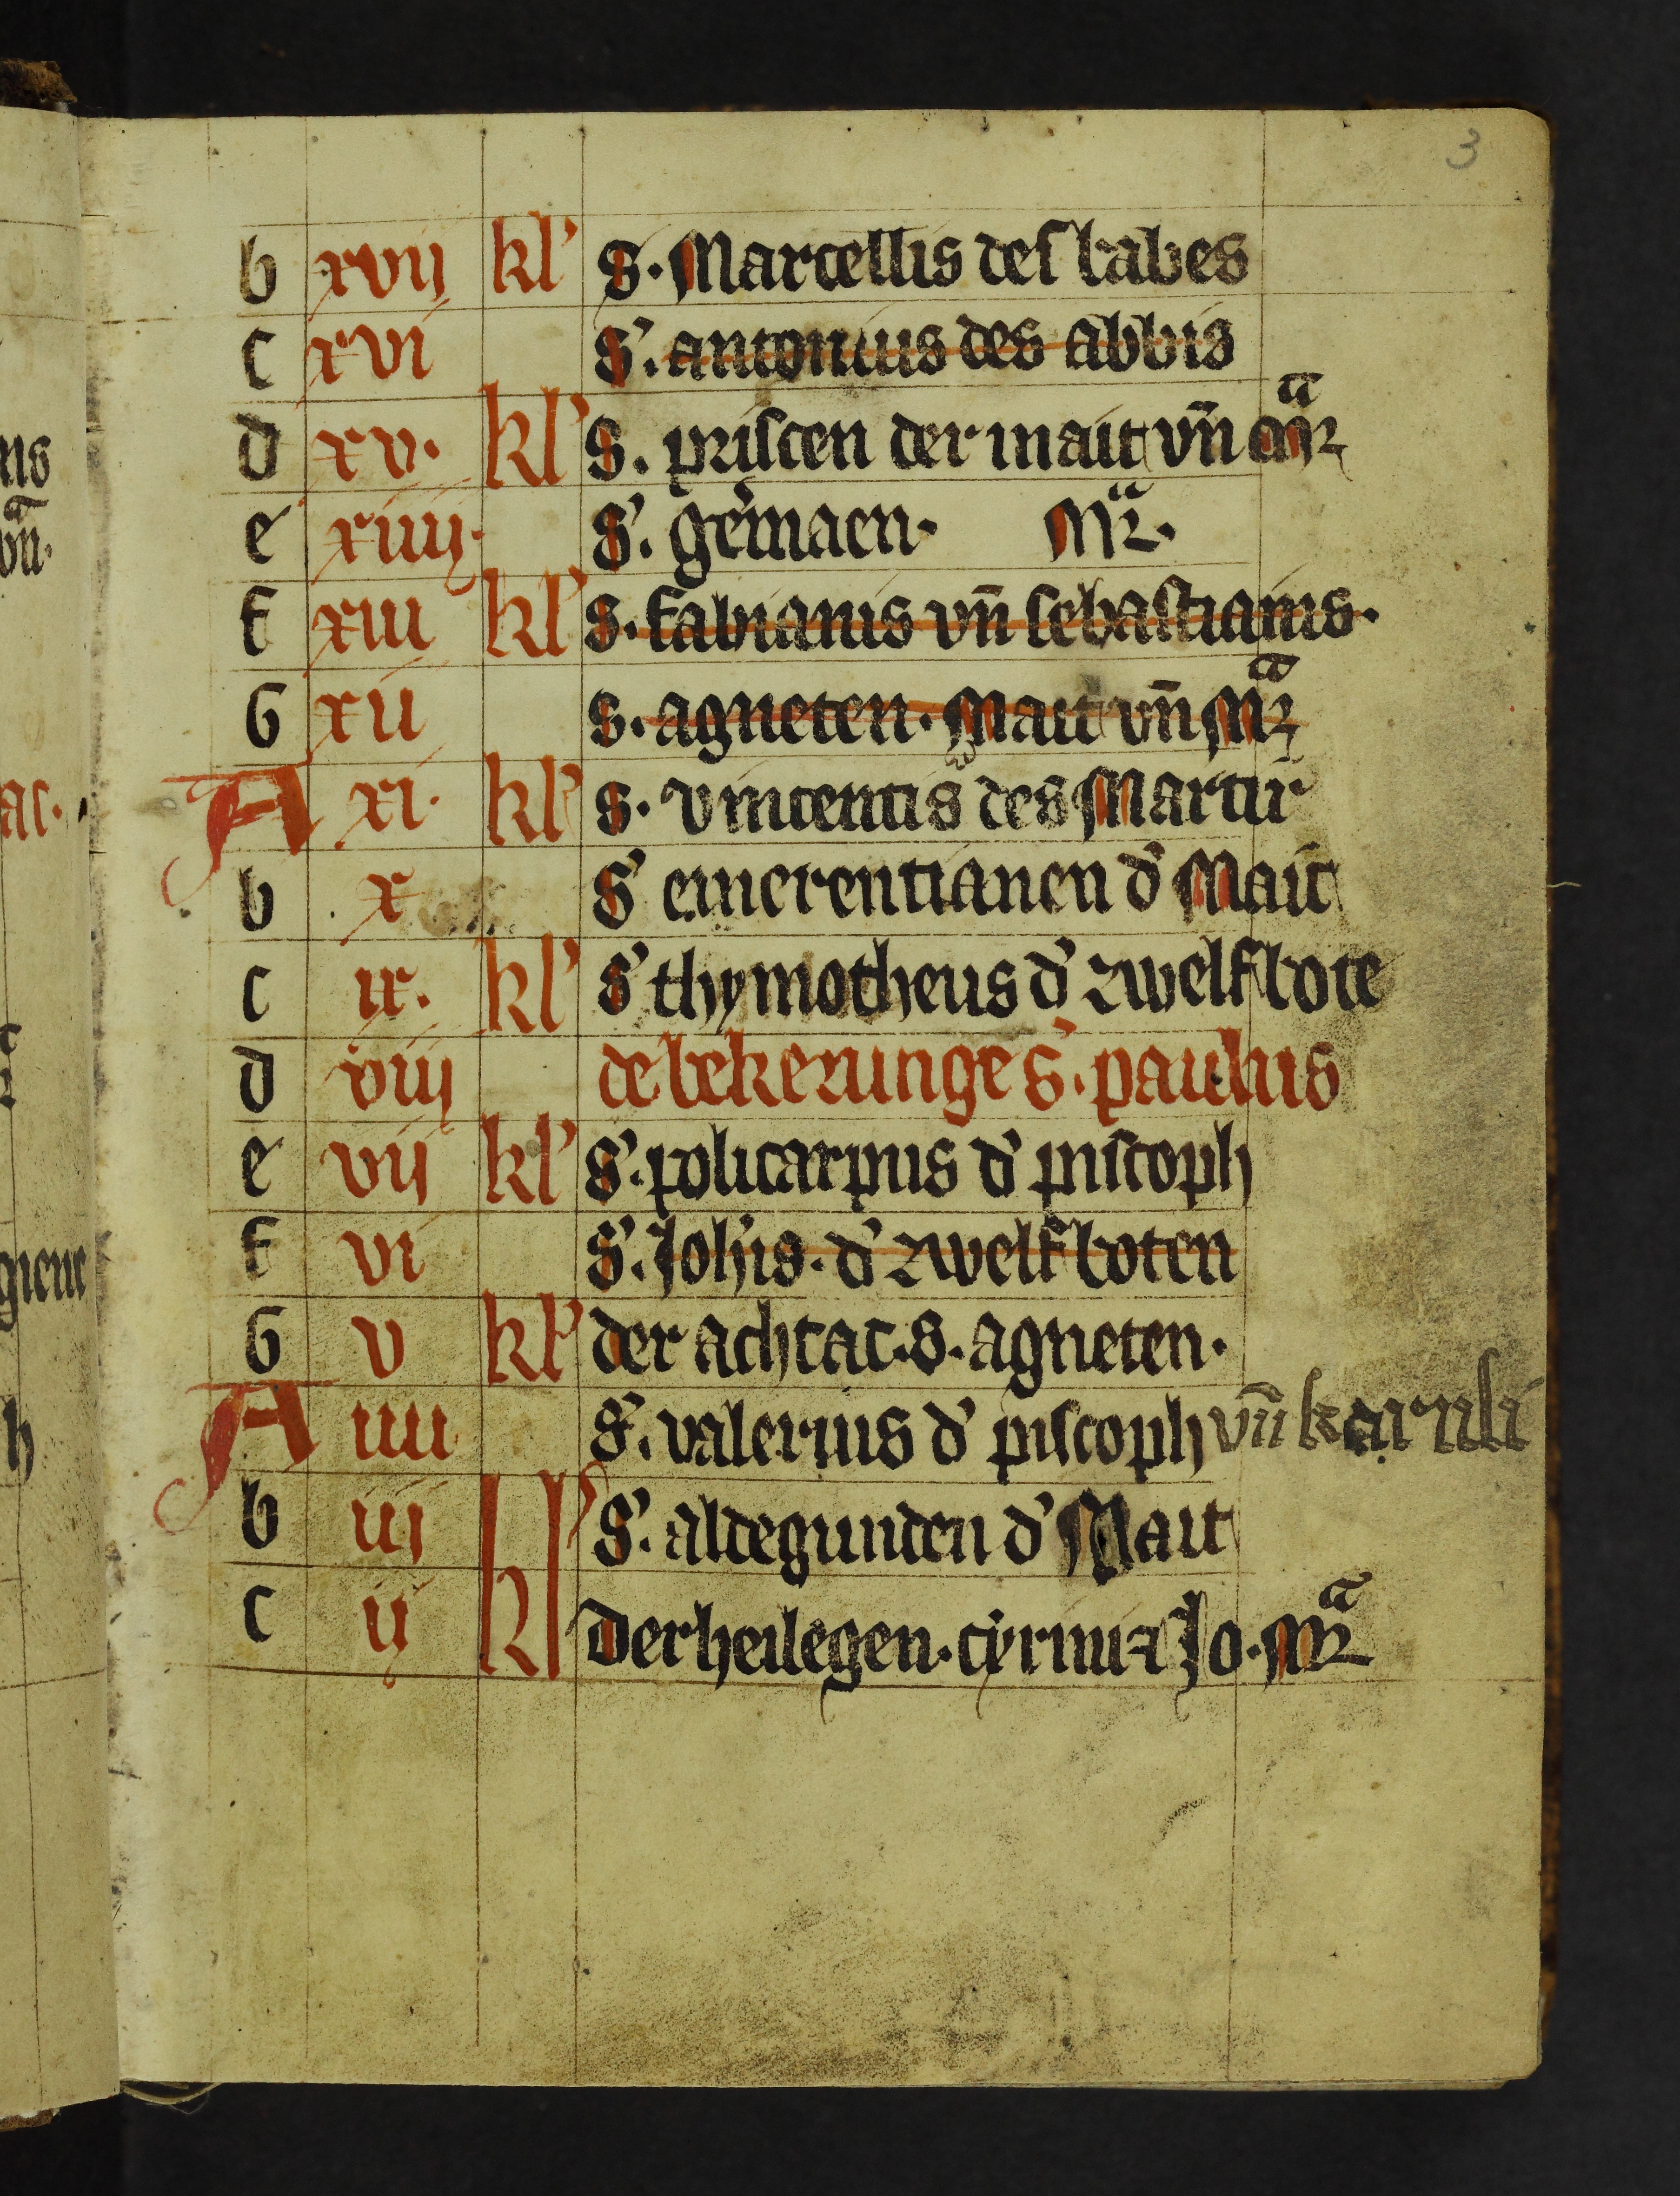 3
b xvij kl' S. Marcellis des babes
c xvi S'. antonius des abbis
d xv. kl' S. priscen der mait vn̄ mͣr
e xiiij. S'. germaen. Mͣr.
f xiii kl' S. fabianis vn̄ sebastianis.
G xii S. agneten. Mait vn̄ Mͣr
A xi. kl' S. vincentis des Martir
b x S' emerentianen d' Mait
c ix. kl' S' thymotheus d' zwelfbote
d viij de bekeringe S'. paulus
e vij kl' S'. policarpus d' piscoph
f vi S'. Joh'is. d' zwelfboten
G v kl' der achtac. S. agneten.
A iiii S'. valerius d' piscoph vn̄ karuli
b iij kl' S'. aldegunden d' Mait
c ij kl Der heilegen. cyrini ⁊ Jo. Mͣr